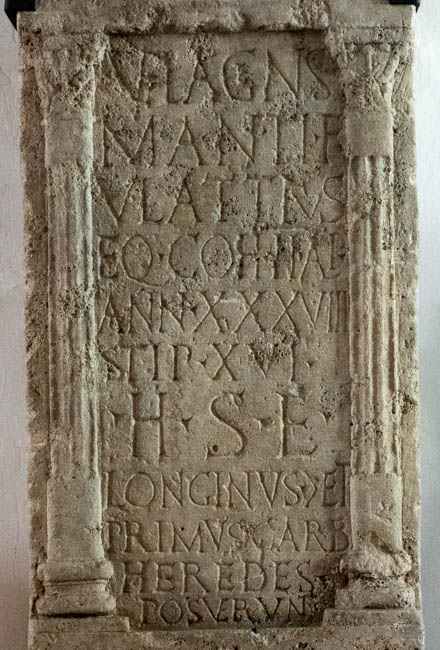 MANTI·F
VLATTIVS
EQ·COH
ANN·XXXVIII
STIP·XVI
·H·S·E·
LONGINVS
PRIMVS CARB
HEREDES
POSVERVN